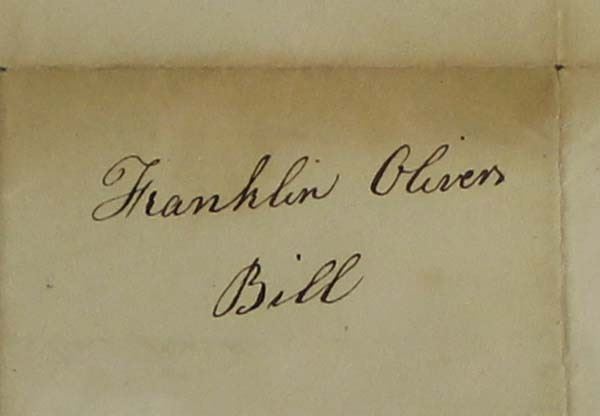 Franklin Olivers
Bill